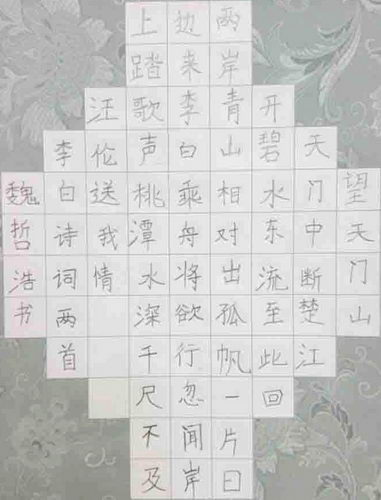 望天门山
天门中断楚江
开碧水东流至此回
两岸青山相对出孤帆一片日
边来李白乘舟将欲行忽闻岸
上踏歌声桃潭水深千尺不及
汪伦送我情
李白诗词两首
魏哲浩书